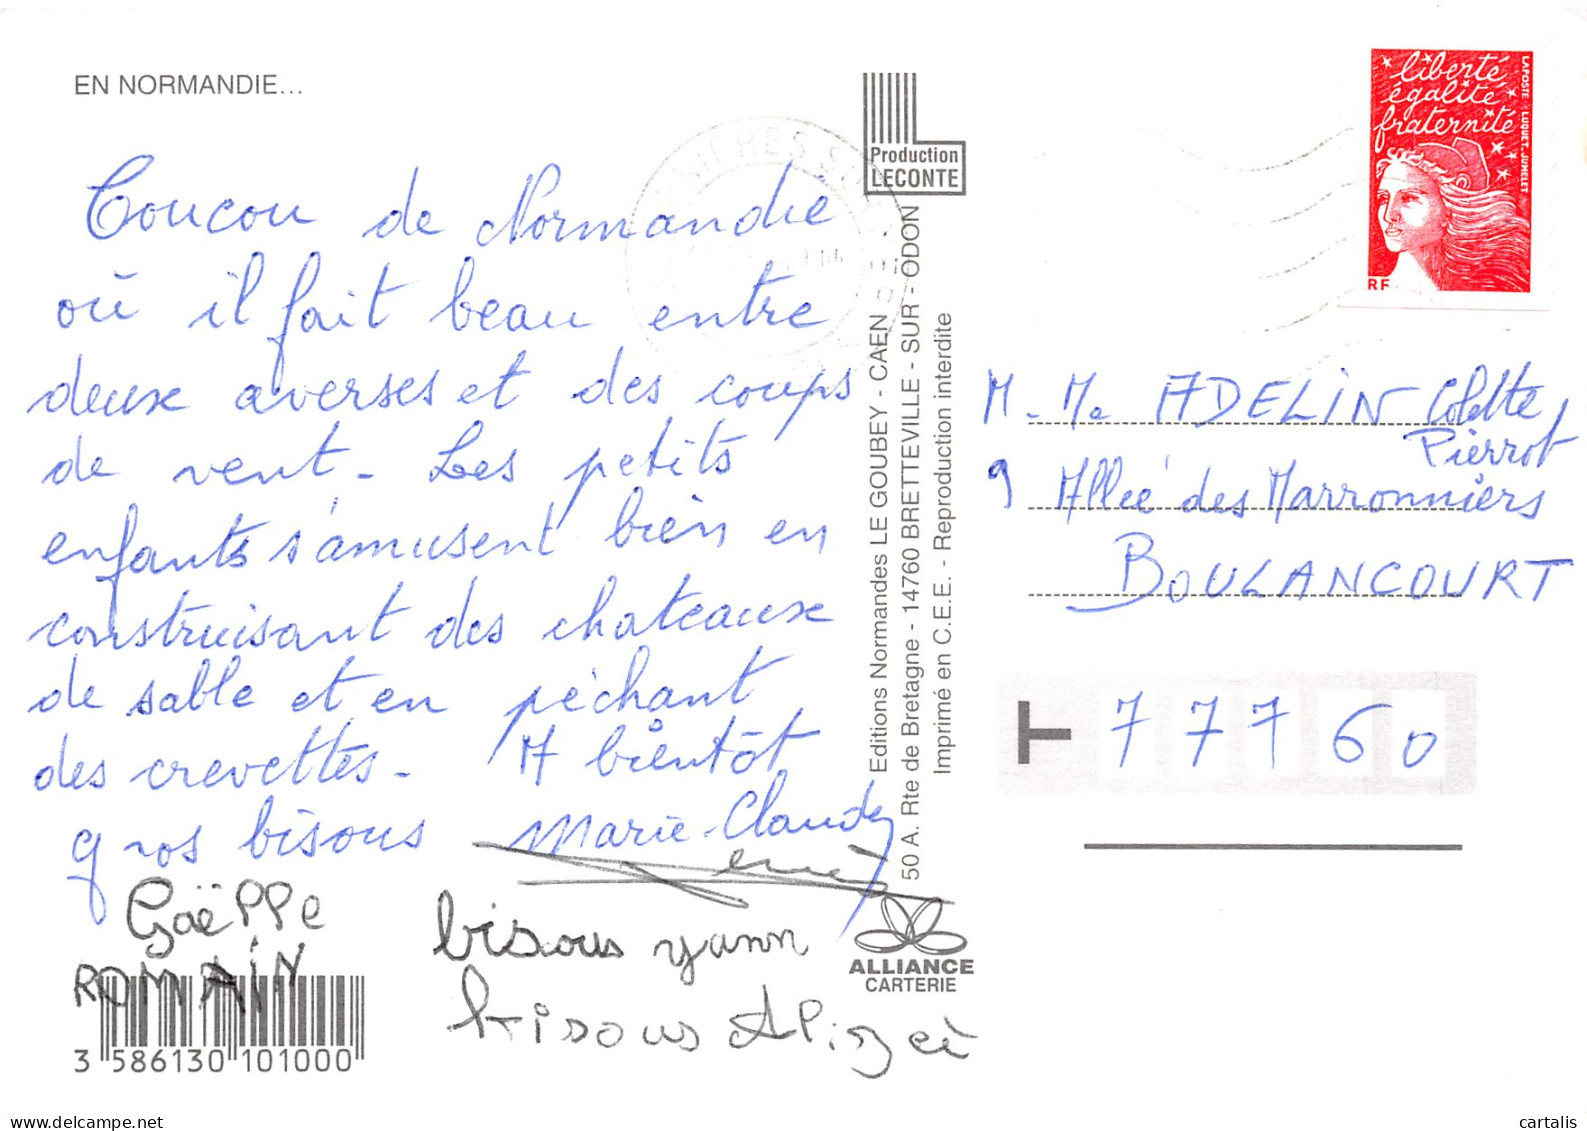 EN NORMANDIE...
Coucou de Normandie
où il fait beau entre
deux averses et des coups
de vent. Les petits
enfants s'amusent bien en
construisant des chateaux
de sable et en péchant
des crevettes. A bientôt
gros bisous Marie-Claude
Gaëlle
ROMAIN
bisous yann
bisous Alizée
3 586130 101000
Production
LECONTE
Editions Normandes LE GOUBEY - CAEN
50 A. Rte de Bretagne - 14760 BRETTEVILLE - SUR - ODON
Imprimé en C.E.E. - Reproduction interdite
ALLIANCE
CARTERIE
liberté
égalité
fraternité
LAPOSTE LUQUET.JUMELET
RF
M. Me ADELIN Colette
Pierrot
9 Allée des Marronniers
BOULANCOURT
77760
delcampe.net
cartalis